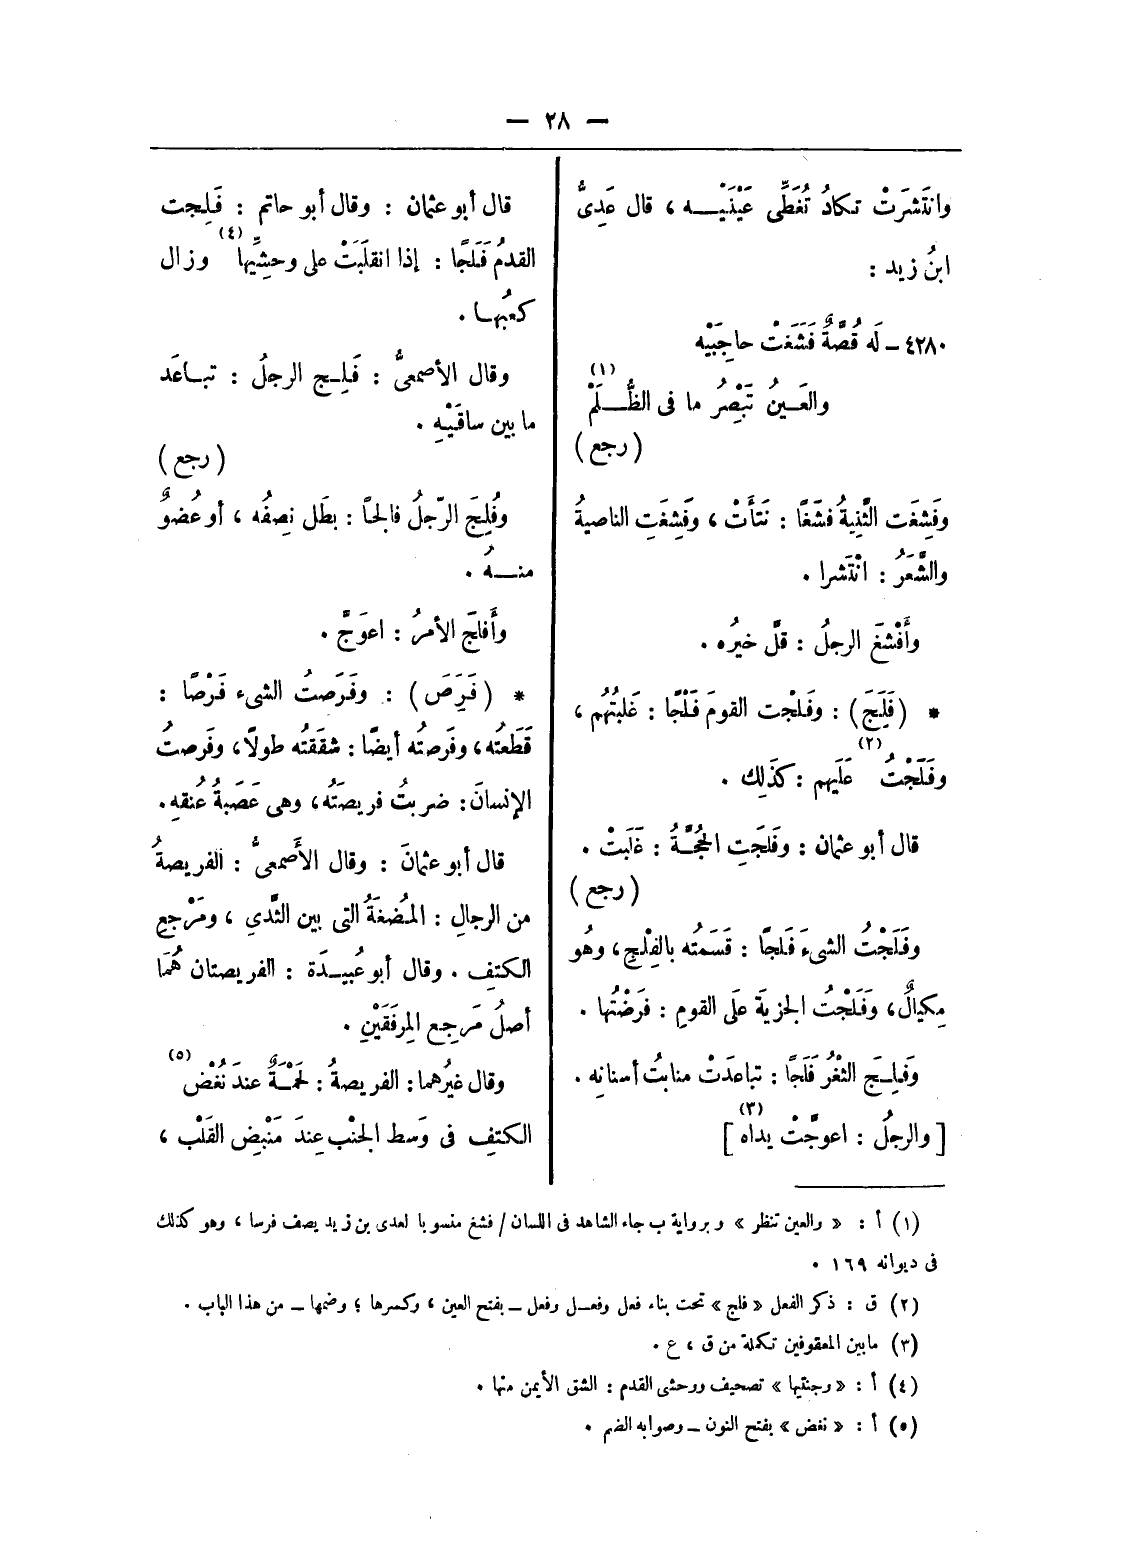 — ٢٨ —
وانتَشرَتْ تكادُ تُغَطِّى عَيْنَيْـــه ، قال عَدِىُّ
ابنُ زيد :
٤٢٨٠ – لَه قُصَّةٌ فَشَغَتْ حاجِبَيْه
والعَــينُ تَبْصِرُ ما فى الظُّـــلَمْ (١)
( رجع )
وفَشِغَت الثَّنِيةُ فشَغًا : نَتَأَتْ ، وفَشِغَتِ الناصيةُ
والشَّعَرُ : انْتَشرا .
وأَفْشغَ الرجلُ : قلَّ خيرُه .
* ( فَلَجَ ) : وفَلْجت القومَ فَلْجًا : غَلبتُهُم ،
وفَلَجْتُ (٢) عَلَيهم : كذَلِك .
قال أبو عثمان : وفَلَجَتِ الحُجَّـةُ : غَلَبتْ .
( رجع )
وفَلَجْتُ الشىءَ فَلجًا : قَسَمْتُه بالفِلْجِ ، وهُو
مِكيالٌ ، وفَلَجْتُ الجزيَةَ عَلَى القومِ : فرَضْتُها .
وفَلِـجَ الثغْرُ فَلَجًا : تباعَدَتْ منابتُ أسنانِه .
[ والرجلُ : اعوجَّتْ يداه (٣) ]
قال أبو عثمان : وقال أبو حاتم : فَلِجت
القدمُ فَلَجًا : إذا انقلَبَتْ على وحشِيِّها (٤) وزال
كعبُهـا .
وقال الأصمعىُّ : فَلِـج الرجلُ : تبـاعَد
ما بين ساقَيْهِ .
( رجع )
وفُلِجَ الرّجلُ فالجاً : بطَل نِصفُه ، أو عُضوٌ
منــهُ .
وأَفلجَ الأمرُ : اعوَجَّ .
* ( فَرَصَ ) : وفَرَصتُ الشىء فَرْصًا :
قَطَعتُه ، وفَرصتُه أيضًا : شقَقتُه طولًا ، وفَرصتُ
الإنسانَ : ضربتُ فريصتَهُ ، وهى عَصَبةُ عُنقهِ .
قال أبو عثمانَ : وقال الأَصمعىُّ : الفريصةُ
من الرجالِ : المُضغَةُ التى بين الثَّدىِ ، ومَرْجعِ
الكتفِ . وقال أبو عُبيـدَة : الفريصتان هُمَا
أصلُ مَرجِع المِرفَقَيْنِ .
وقال غيرُهما : الفريصةُ : لَحْمَـةٌ عندَ نُغْض (٥)
الكتفِ فى وَسط الجنْب عِندَ مَنْبِضِ القَلْب ،
(١) أ : « والعين تنظر » وبرواية ب جاء الشاهد فى اللسان / فشغ منسوبا لعدى بن زيد يصف فرسا ، وهو كذلك
فى ديوانه ١٦٩ .
(٢) ق : ذكر الفعل « فلج » تحت بناء فعل وفعــل وفعل – بفتح العين ، وكسرها ؛ وضمها – من هذا الباب .
(٣) مابين المعقوفين تكملة من ق ، ع .
(٤) أ : « وجنتيها » تصحيف ووحشى القدم : الشق الأيمن منها .
(٥) أ : « نغض » بفتح النون – وصوابه الضم .